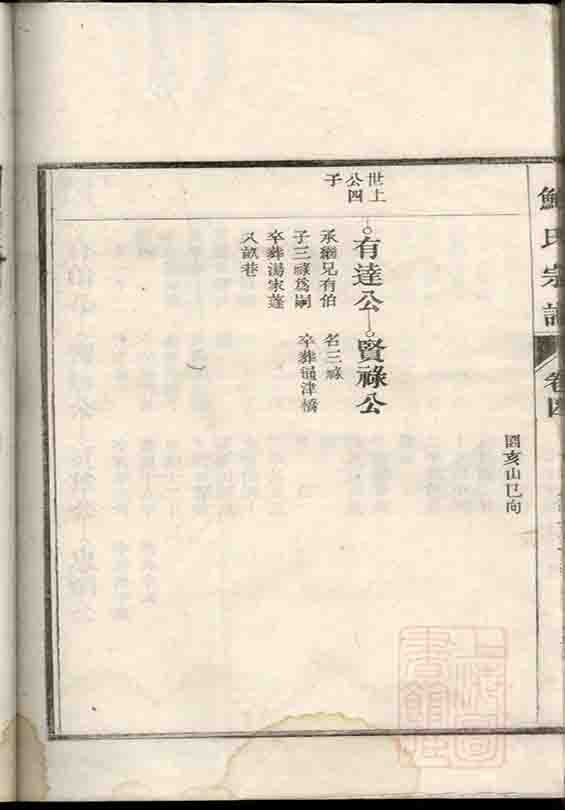 鮑氏宗譜
卷四
園亥山巳向
世上
公四
子
有達公
賢祿公
承繼兄有伯
子三祿爲嗣
卒葬湯家蓬
八畝巷
名三祿
卒葬通津橋
上海圖書館藏